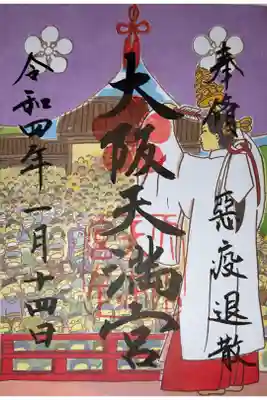 奉修　悪疫退散
大阪天満宮
令和四年一月十四日